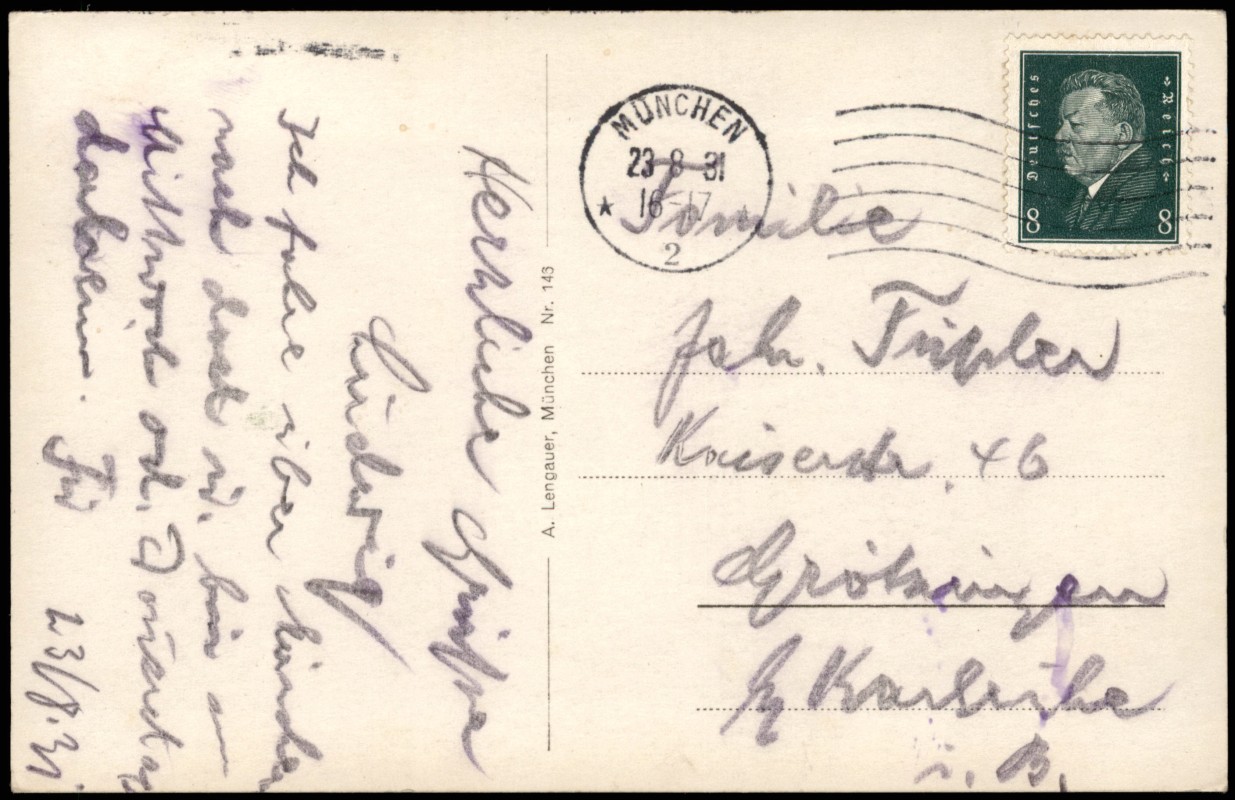 Herzliche Grüsse
Ludwig
Ich fahre über München
nach dort u. bin am
Mittwoch od. Donnerstag
daheim.
23/8.31.
A. Lengauer, München Nr. 143
MÜNCHEN
23 8 31
16-17
2
Deutsches Reich
8 8
Familie
Joh.
Kaiserstr. 46
Grötzingen
b/ Karlsruhe
i. B.